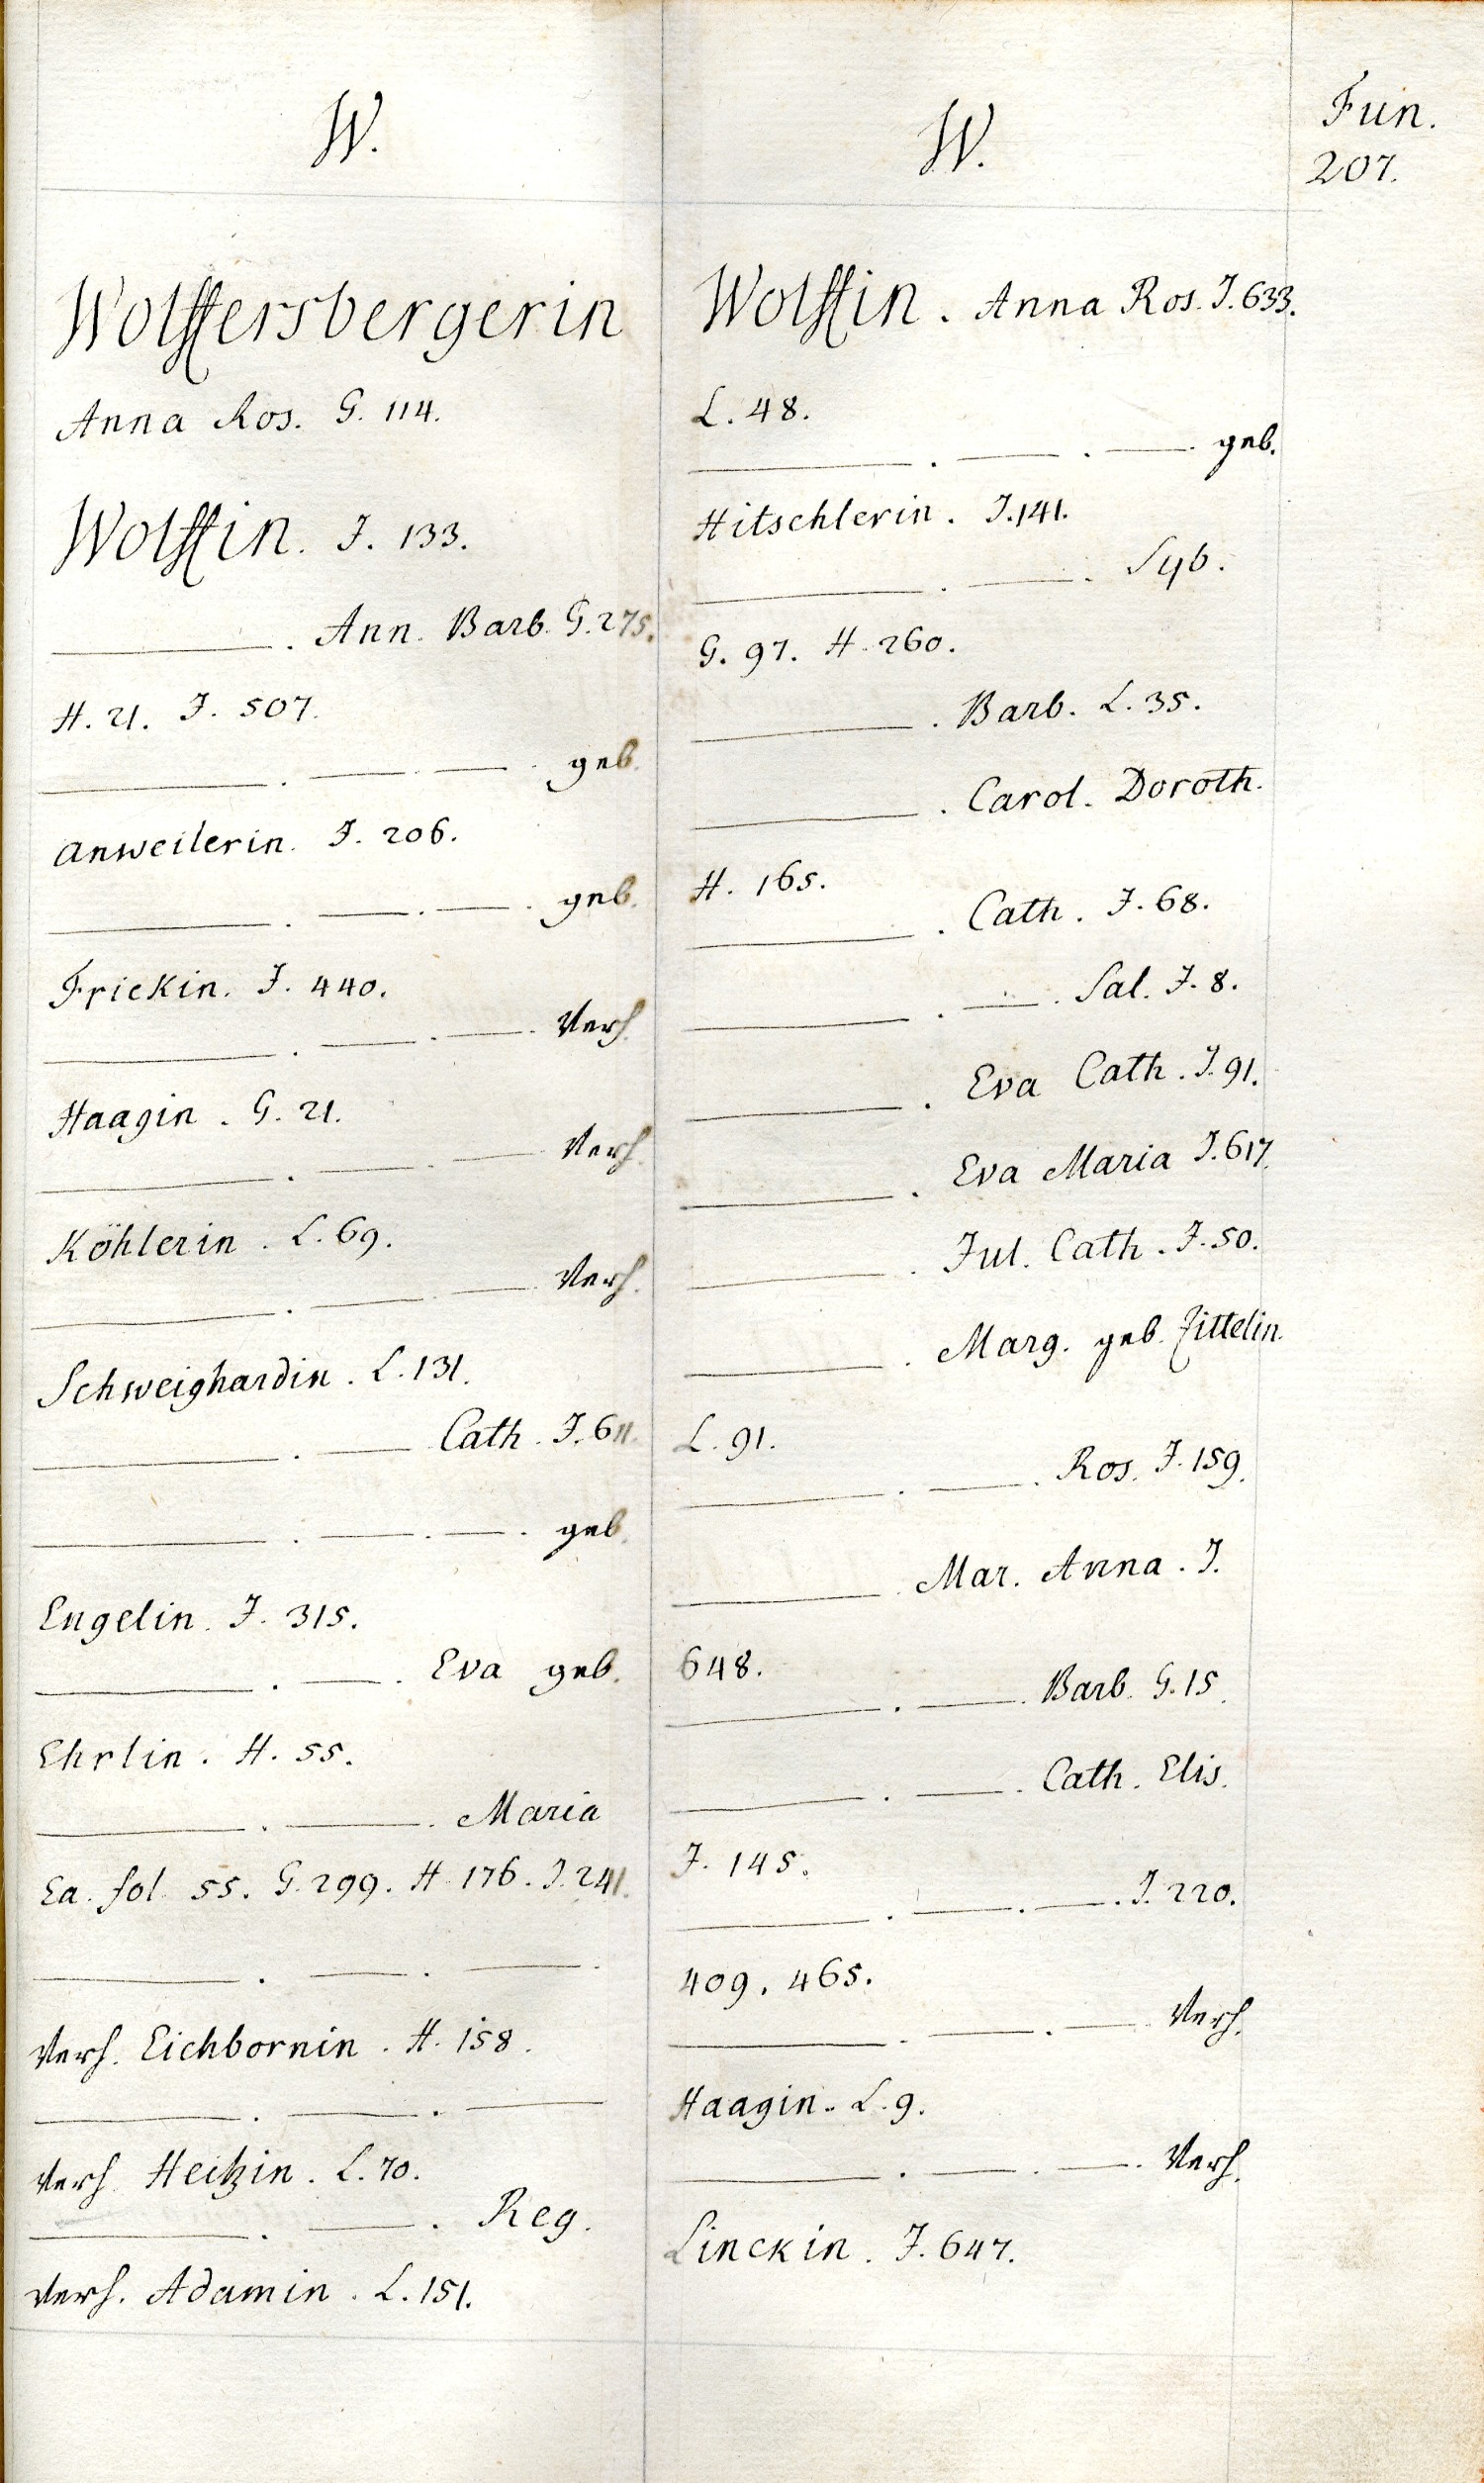 W.
Wolffersbergerin
Anna Ros. G. 114.
Wolffin. J. 133.
———. Ann. Barb. G. 275.
H. 21. J. 507.
———. ——. ——. geb.
Anweilerin. J. 206.
———. ——. ——. geb.
Frickin. J. 440.
———. ——. ——. Verh.
Haagin. G. 21.
———. ——. ——. Verh.
Köhlerin. L. 69.
———. ——. ——. Verh.
Schweighardin. L. 131.
———. —— Cath. J. 611.
———. ——. ——. geb.
Engelin. J. 315.
———. ——. Eva geb.
Ehrlin. H. 55.
———. ——. Maria
Ea. fol. 55. G. 299. H. 176. J. 241.
———. ——. ——.
Verh. Eichbornin. H. 158.
———. ——. ——
Verh. Heitzin. L. 70.
———. ——. Reg.
Verh. Adamin. L. 151.
W.
Wolffin. Anna Ros. J. 633.
L. 48.
———. ——. ——. geb.
Hitschlerin. J. 141.
———. ——. Syb.
G. 97. H. 260.
———. Barb. L. 35.
———. Carol. Doroth.
H. 165.
———. Cath. J. 68.
———. ——. Sal. J. 8.
———. Eva Cath. J. 91.
———. Eva Maria J. 617.
———. Jul. Cath. J. 50.
———. Marg. geb. Zittelin.
L. 91.
———. ——. Ros. J. 159.
———. Mar. Anna. J.
648.
———. ——. Barb. G. 15.
———. ——. Cath. Elis.
J. 145.
———. ——. ——. J. 220.
409. 465.
———. ——. ——. Verh.
Haagin. L. 9.
———. ——. ——. Verh.
Linckin. J. 647.
Fun.
207.